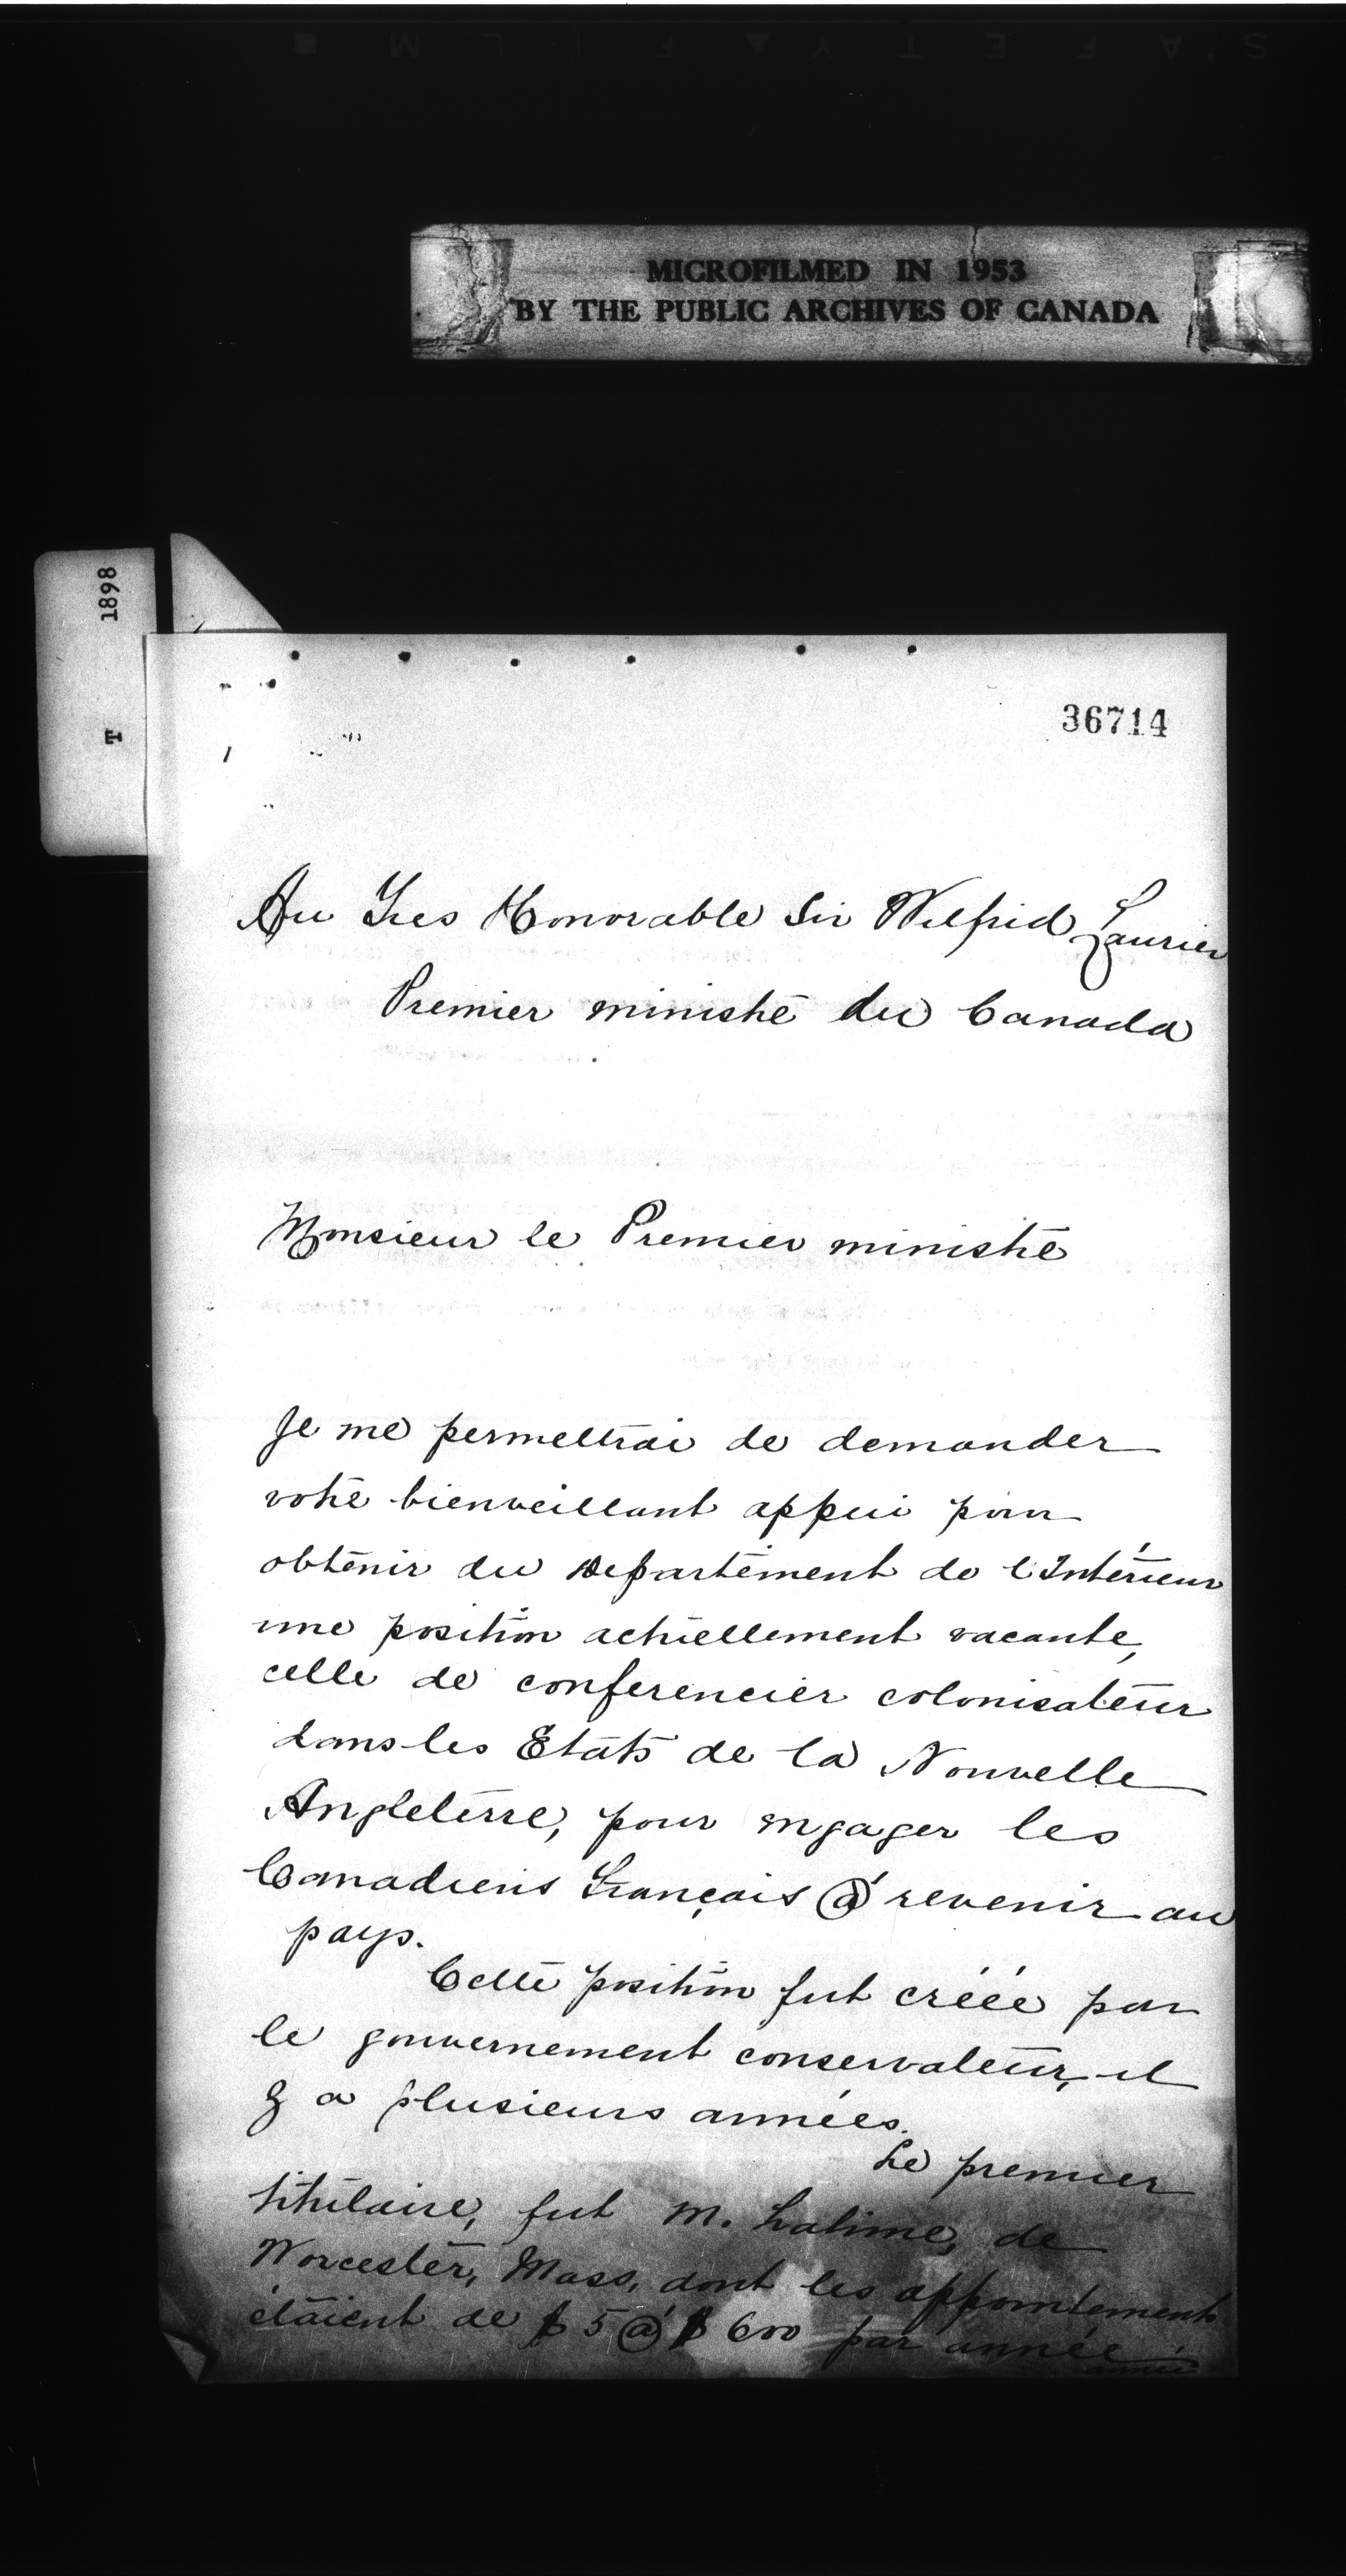 MICROFILMED IN 1953
BY THE PUBLIC ARCHIVES OF CANADA
1898
T
36714
Au Tres Honorable Sir Wilfrid Laurier
Premier ministre du Canada
Monsieur le Premier ministre
Je me permettrai de demander
votre bienveillant appui pour
obtenir du Departement de l'Intérieur
une position actuellement vacante,
celle de conferencier colonisateur
dans les Etats de la Nouvelle
Angleterre, pour engager les
Canadiens Français @ revenir au
pays.
Cette position fut créée par
le gouvernement conservateur, il
y a plusieurs années.
Le premier
titulaire, fut M. Latime, de
Worcester, Mass, dont les appointements
étaient de $5 @ $600 par année
année